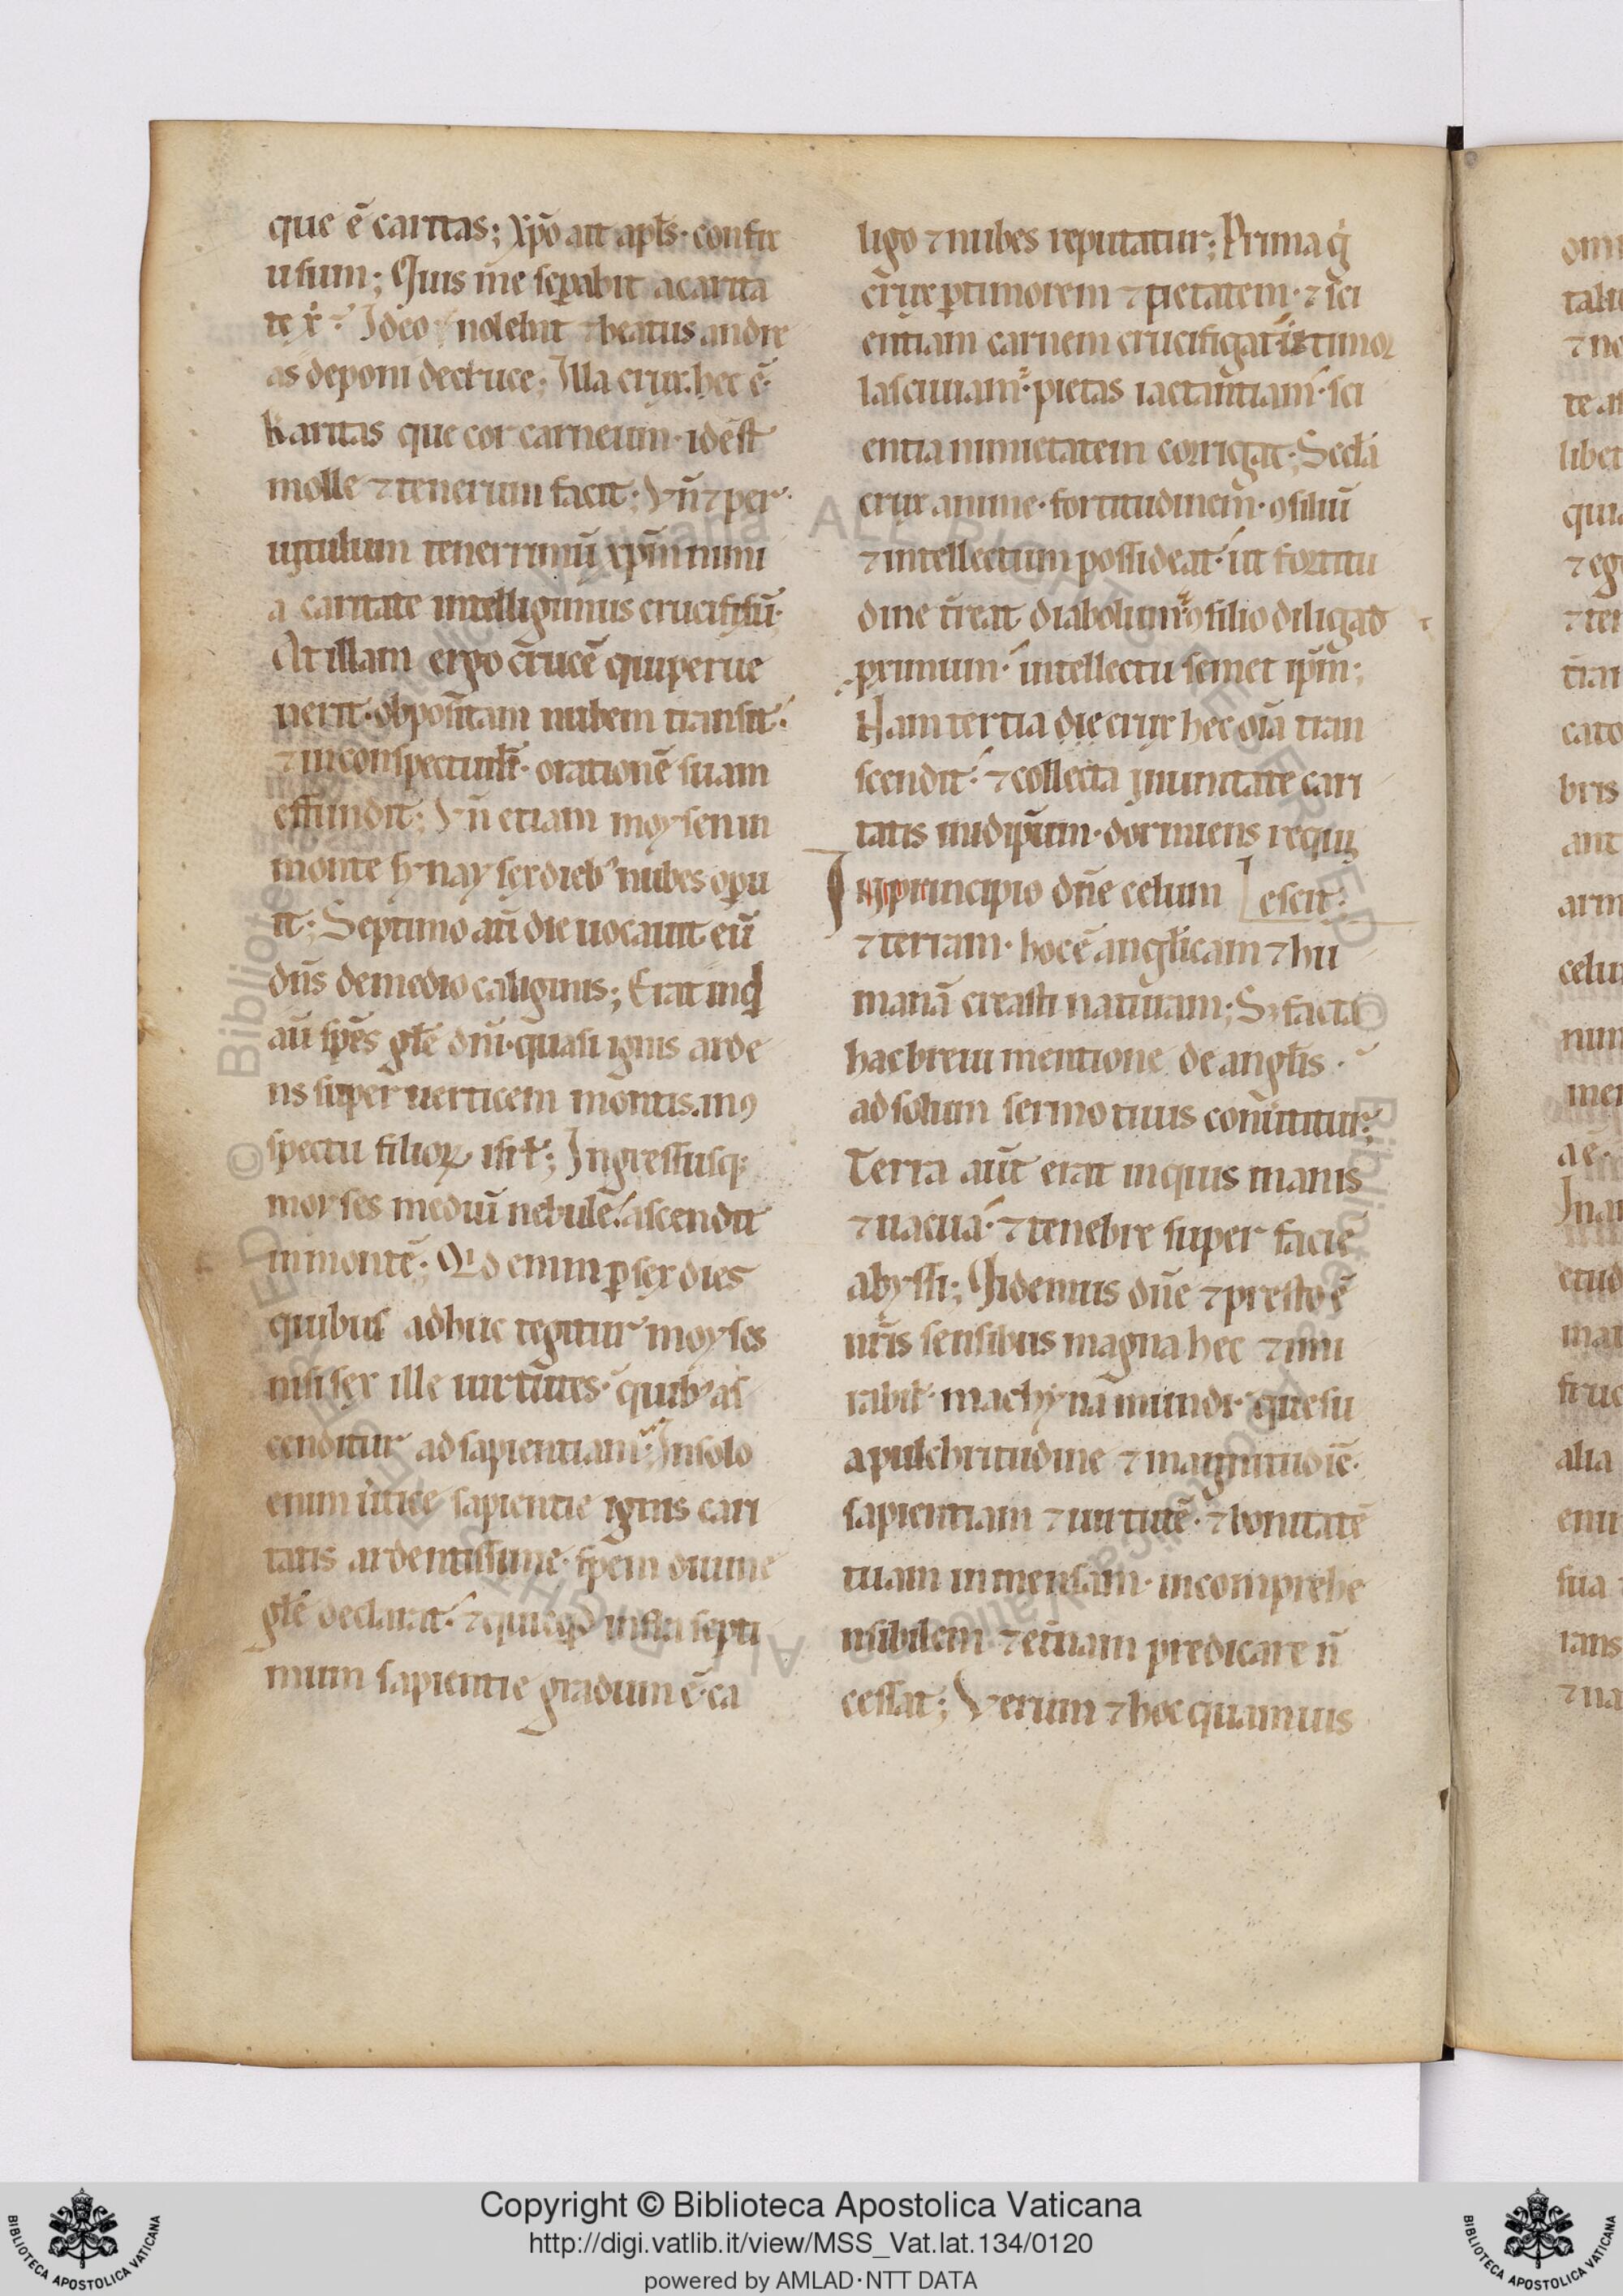 que ē caritas; xp̄o ait apl̄s · confix
us sum; Quis me sep̱abit a carita
te x̄ᵢ? Ideo nolebat ⁊ beatus andre
as deponi de cruce; Illa crux. hec ē ·
karitas que cor carneum · id est
molle ⁊ tenerum facit; Vn̄ ⁊ per
uitulum tenerrimū xp̄m nimi
a caritate intelligimus crucifixū ·
At illam ergo crucē qui perue
nerit · obpositam nubem transit ·
⁊ in conspectu
orationē suam
effundit; Vn̄ etiam moysen in
monte synay sex dieb' nubes op̱u
it; Septimo aū die uocauit eū
dn̄s de medio caliginis; Erat inq̇
aū sp̄es gl̄e dn̄i · quasi ignis arde
ns super uerticem montis. in ꝯ
spectu filioꝝ isrl̄; Ingressusq;
moyses mediū nebule · ascendit
in montē; Qd enim p̱ sex dies
quibus adhuc tegitur moyses
nisi sex ille uirtutes · quib' as
cenditur ad sapientiam? In solo
enim uertice sapientie ignis cari
tatis ardentissime · sp̄em diuine
gl̄e declarat · ⁊ quicqd infra septi
mum sapientie gradum ē · ca
ligo ⁊ nubes reputatur; Prima q̇
crux p̱ timorem ⁊ pietatem · ⁊ sci
entiam carnem crucifigat · ut timor
lasciuiam · pietas iactantiam · sci
entia nimietatem corrigat; Secd̄a
crux anime · fortitudinem · ꝯsiliū
⁊ intellectum possideat · ut fortitu
dine t̄reat diabolum · ꝯsilio diligad
primum · intellectu semet ip̄m;
Nam tertia die crux hec oīa tran
scendit · ⁊ collecta in unitate cari
tatis in id ip̄um · dormiens requi
escit;
In principio dn̄e celum
⁊ terram · hoc ē angl̄icam ⁊ hu
manā creasti naturam; Sꝫ facta
hac breui mentione de angl̄is ·
ad solum sermo tuus conuertitur;
Terra aūt erat inquis inanis
⁊ uacua · ⁊ tenebre super faciē
abyssi; Uidemus dn̄e ⁊ presto ē
nr̄is sensibus magna hec ⁊ mi
rabil̄ · machyna mundi · que su
a pulchritudine ⁊ magnitudīe ·
sapientiam ⁊ uirtutē · ⁊ bonitatē
tuam inmensam · incomprehe
nsibilem ⁊ et̄nam predicare n̄
cessat; Verum ⁊ hoc quamuis
Copyright © Biblioteca Apostolica Vaticana
http://digi.vatlib.it/view/MSS_Vat.lat.134/0120
powered by AMLAD·NTT DATA
BIBLIOTECA APOSTOLICA VATICANA
BIBLIOTECA APOSTOLICA VATICANA